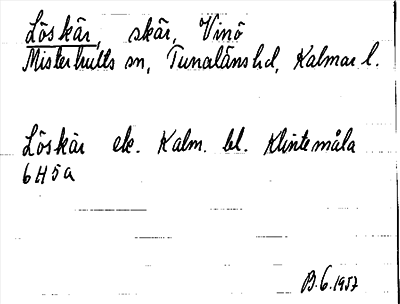 Löskär, skär, Vinö
Misterhults sn, Tunalänshd, Kalmar l.
Löskär ek. Kalm. bl. Klintemåla
6H5a
B.G.1957